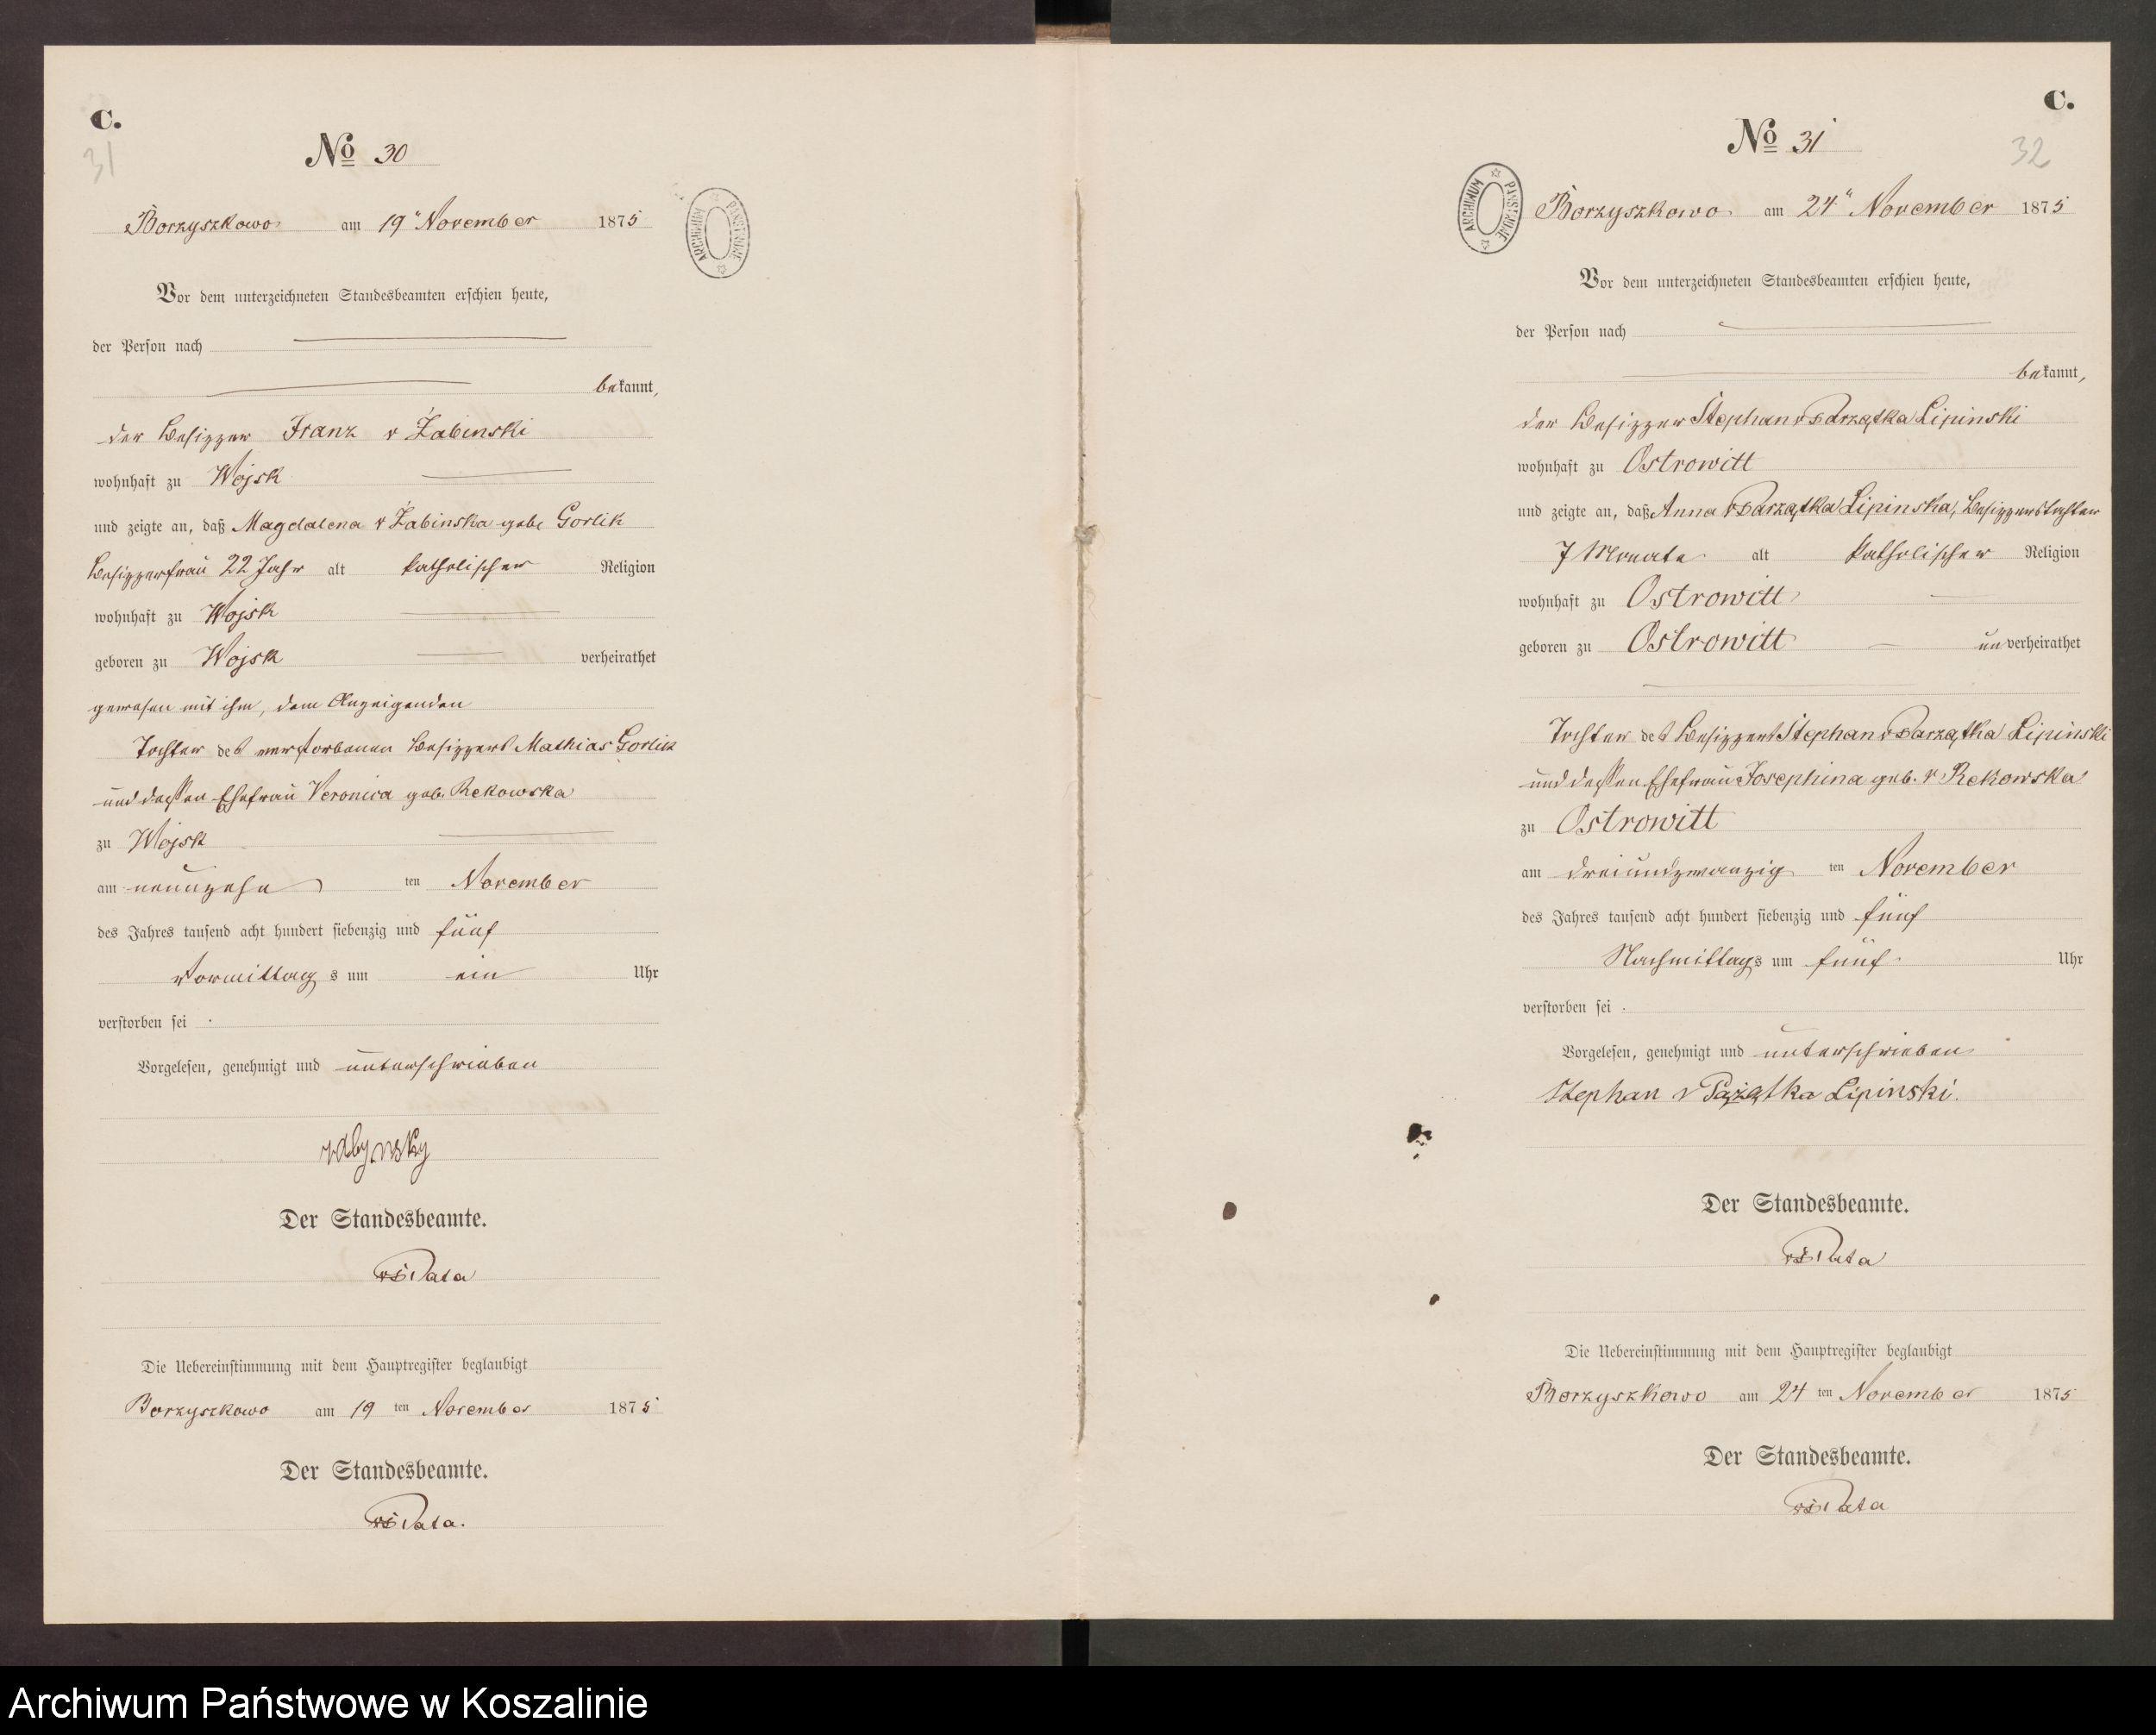 C.
31
No 30
Borzyszkowo am 19" November 1875
ARCHIWUM PAŃSTWOWE
Vor dem unterzeichneten Standesbeamten erschien heute,
der Person nach
bekannt,
der Besizzer Franz v Żabinski
wohnhaft zu Wojsk
und zeigte an, daß Magdalena v Żabinska gebe Gorlik
Besizzerfrau 22 Jahr alt katholischer Religion
wohnhaft zu Wojsk
geboren zu Wojsk verheirathet
gewesen mit ihm, dem Anzeigenden
Tochter des verstorbenen Besizzers Mathias Gorlik
und dessen Ehefrau Veronica geb. Rekowska
zu Wojsk
am neunzehn ten November
des Jahres tausend acht hundert siebenzig und fünf
Vormittag s um ein Uhr
verstorben sei .
Vorgelesen, genehmigt und unterschrieben
Der Standesbeamte.
Pata
Die Uebereinstimmung mit dem Hauptregister beglaubigt
Borzyszkowo am 19 ten November 1875
Der Standesbeamte.
Pata.
C.
32
No 31
ARCHIWUM PAŃSTWOWE
Borzyszkowo am 24" November 1875
Vor dem unterzeichneten Standesbeamten erschien heute,
der Person nach
bekannt,
der Besizzer Stephan v Parzątka Lipinski
wohnhaft zu Ostrowitt
und zeigte an, daß Anna v Parzątka Lipinska, Besizzerstochter
7 Monate alt katholischer Religion
wohnhaft zu Ostrowitt
geboren zu Ostrowitt unverheirathet
Tochter des Besizzers Stephan v Parzątka Lipinski
und dessen Ehefrau Josephina geb. v Rekowska
zu Ostrowitt
am dreiundzwanzig ten November
des Jahres tausend acht hundert siebenzig und fünf
Nachmittags um fünf Uhr
verstorben sei .
Vorgelesen, genehmigt und unterschrieben
Stephan v Pażątka Lipinski.
Der Standesbeamte.
Pata
Die Uebereinstimmung mit dem Hauptregister beglaubigt
Borzyszkowo am 24 ten November 1875
Der Standesbeamte.
Pata
Archiwum Państwowe w Koszalinie